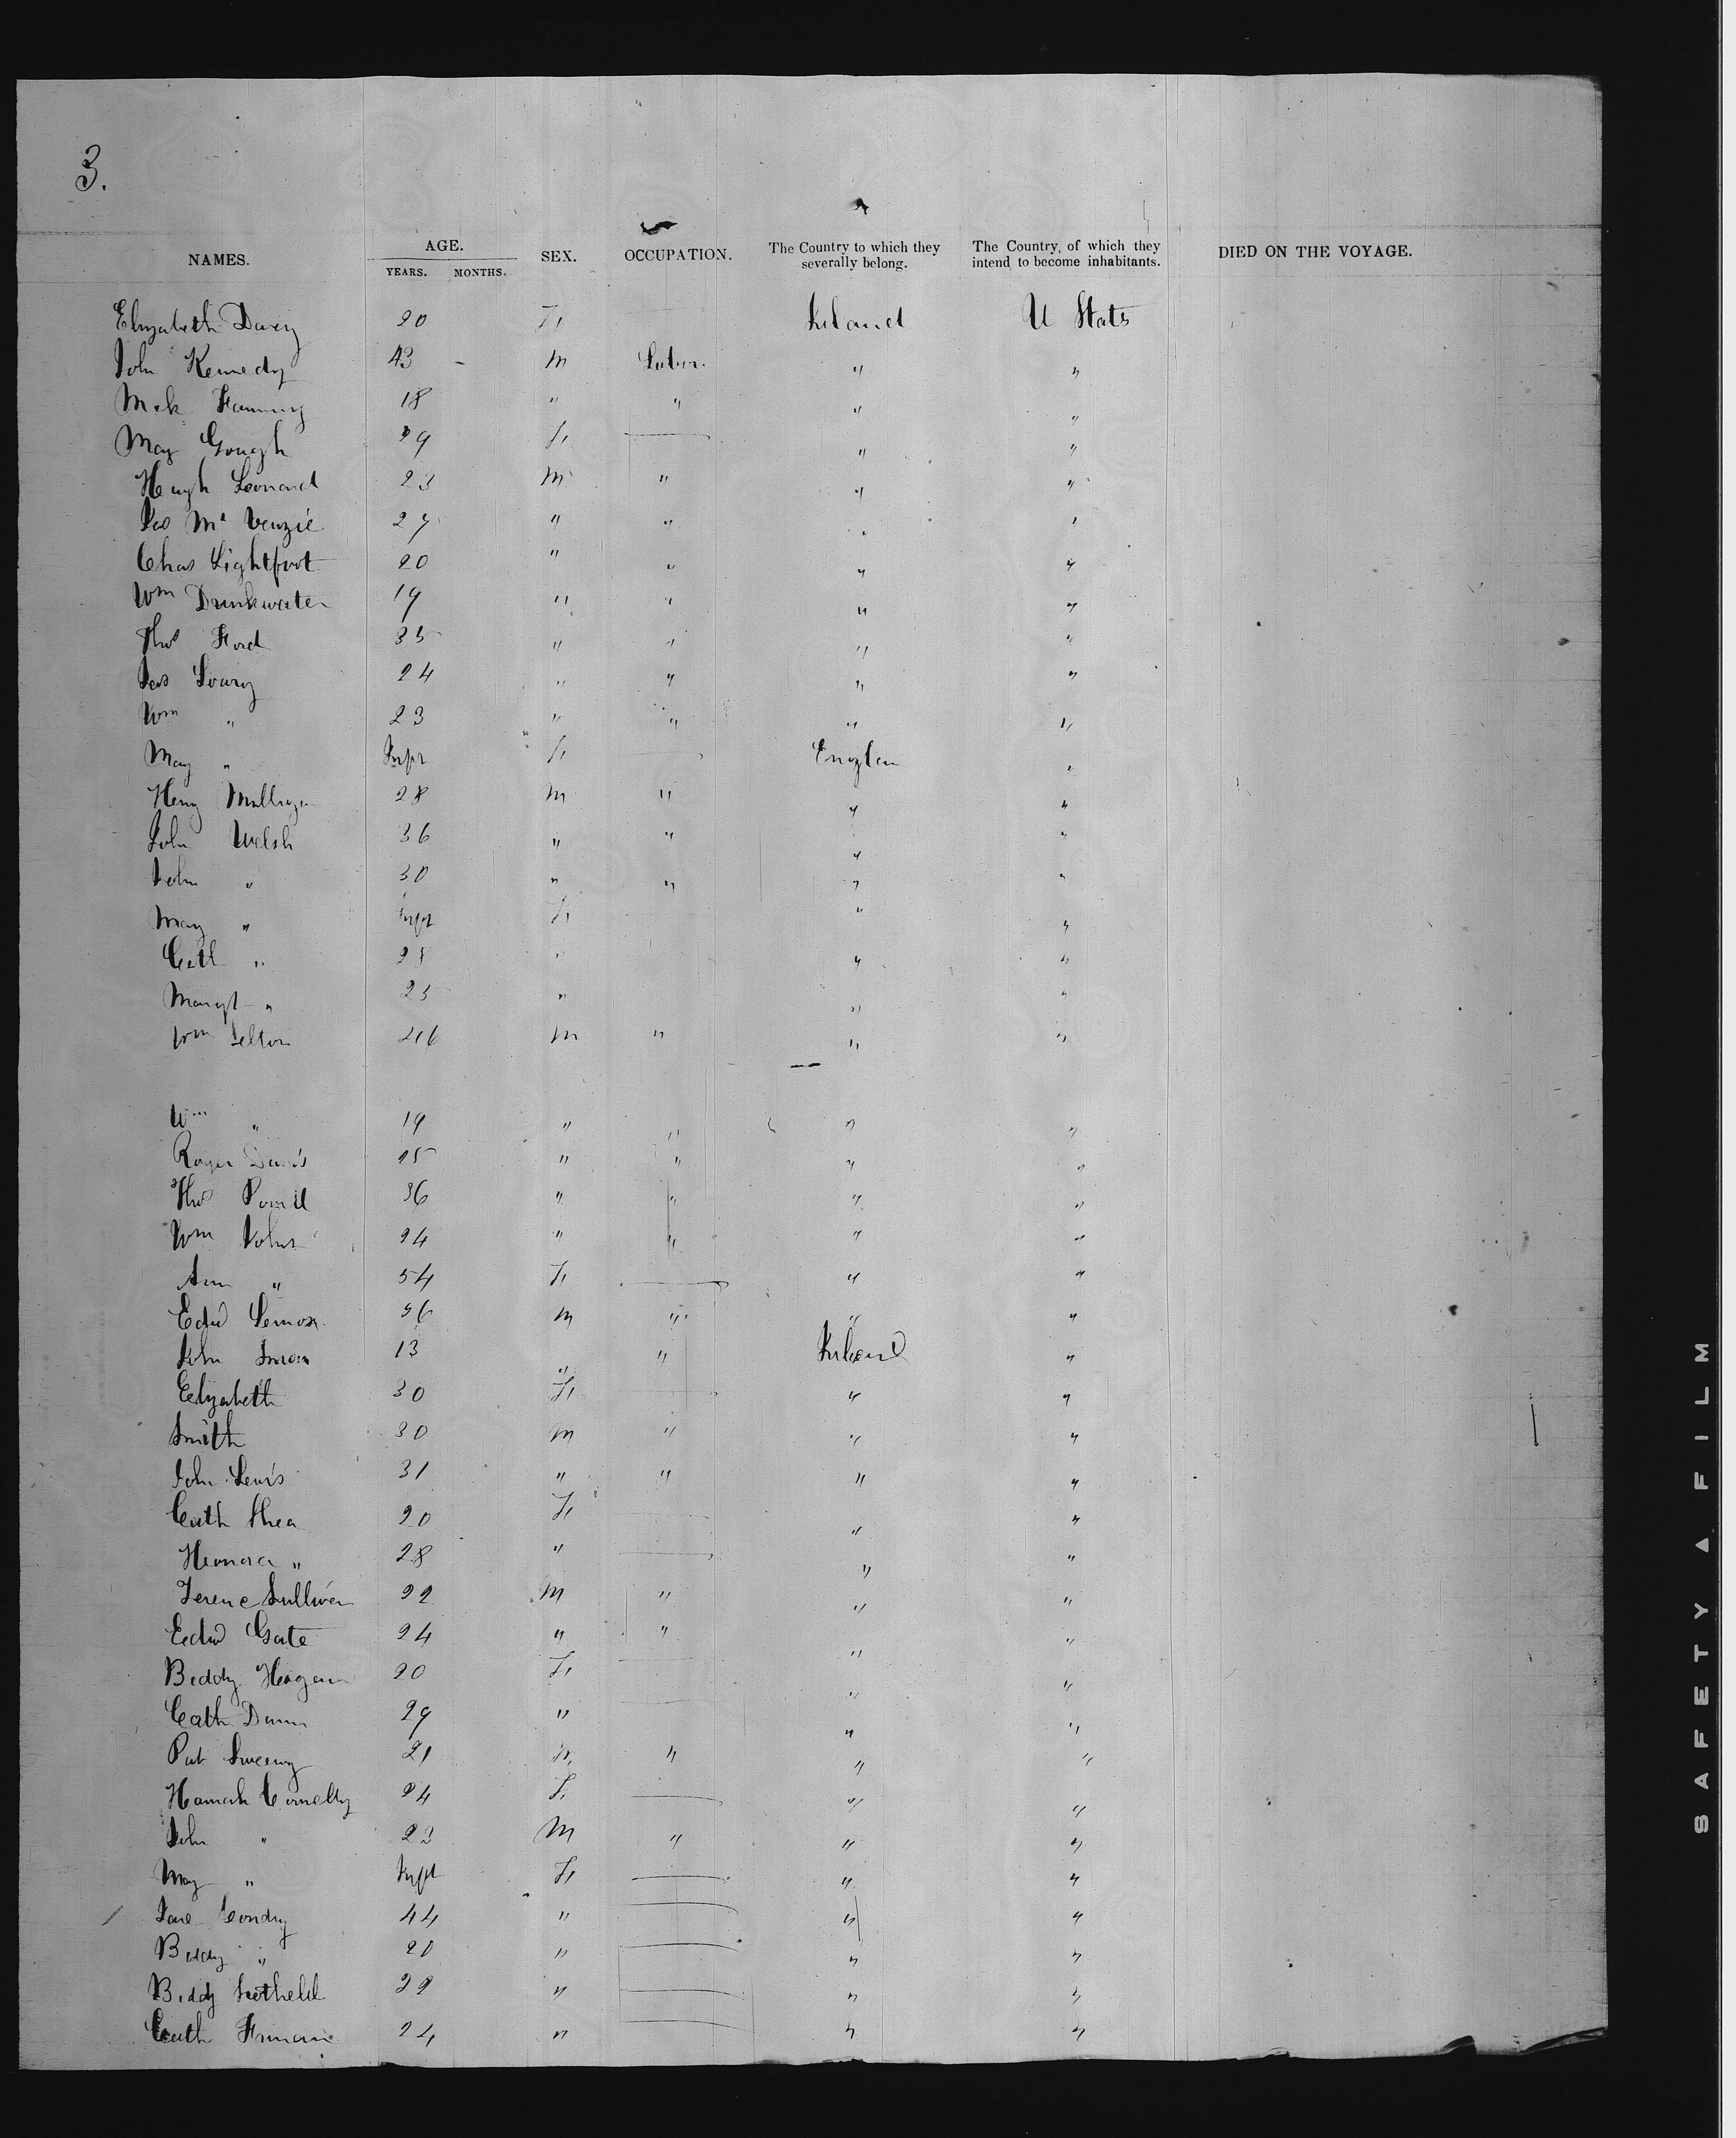 3.
NAMES. AGE. YEARS. MONTHS. SEX. OCCUPATION. The Country to which they severally belong. The Country, of which they intend to become inhabitants. DIED ON THE VOYAGE.
Elizabeth Davey 20 F Ireland U States
John Kennedy 43 - M Labor. " "
Mick Fanning 18 " " " "
May Gough F " "
Hugh Leonard 23 M " " "
Jas Mc Venzie 27 " " " "
Chas Lightfoot 20 " " " "
Wm Drinkwater 19 " " " "
Thos Ford 35 " " " "
Jas Lowry 24 " " " "
Wm " 23 " " " "
May " Inft F Englan "
Heny Milligan 28 M " " "
John Welsh 36 " " " "
John " 30 " " " "
May " Inft F " "
Cath " " " "
Margt " 25 " " "
Wm M " " "
Wm " 19 " " " "
Roger Davis 25 " " " "
Thos 36 " " " "
Wm Johns 24 " " " "
Ann " 54 F " "
Edwd Lennox 36 M " " "
John 13 " " Ireland "
Elizabeth 30 F " "
Smith 30 M " " "
John Lewis 31 " " " "
Cath Shea 20 F " "
Honora " 28 " " "
Terence Sullivan 22 M " " "
Edwd Gate 24 " " " "
Biddy Hogan 20 F " "
Cath Dunn 29 " " "
Pat Sweeny 21 M " " "
Hannah Connelly 24 F " "
John " 23 M " " "
May " Inft F " "
Jane Condry 44 " " "
Biddy " 20 " " "
Biddy 22 " " "
Cath 24 " " "
SAFETY ▲ FILM